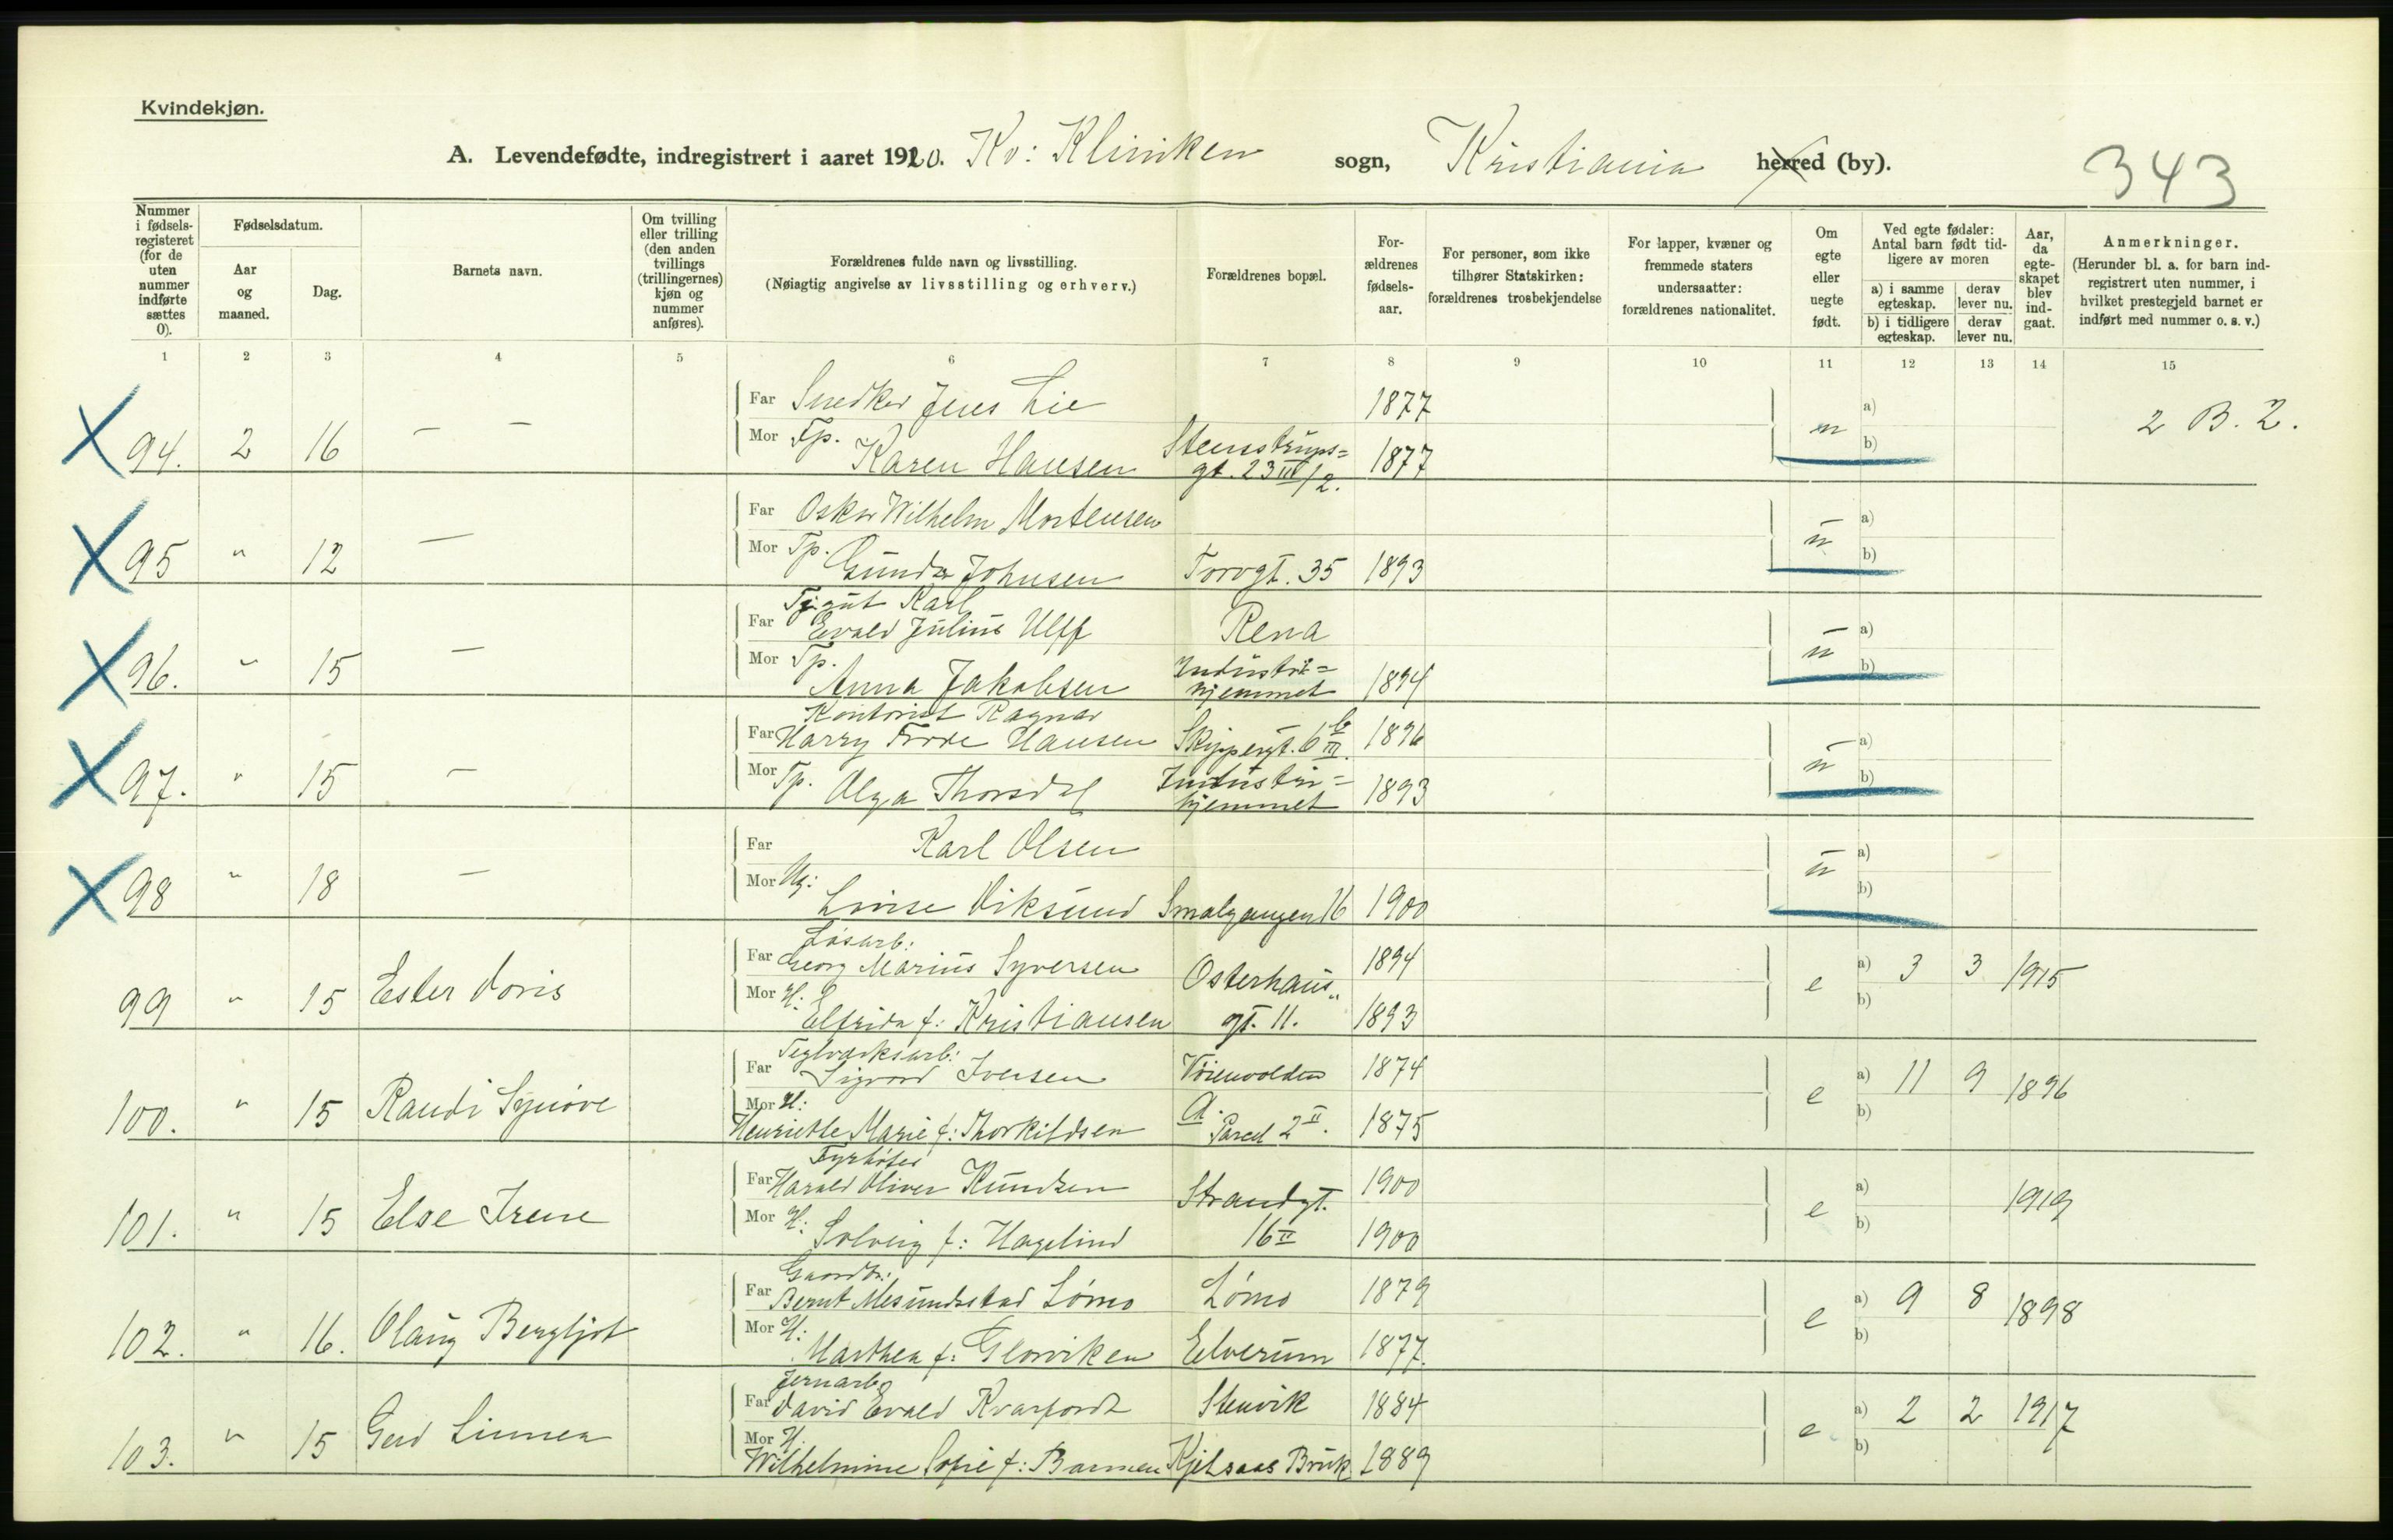 Kvindekjøn.
A. Levendefødte, indregistrert i aaret 1920. Kv: Kliniken sogn, Kristiania herred (by). 343
Nummer i fødsels-registeret (for de uten nummer indførte sættes 0).
Fødselsdatum.
Aar og maaned.
Dag.
Barnets navn.
Om tvilling eller trilling (den anden tvillings (trillingernes) kjøn og nummer anføres).
Forældrenes fulde navn og livsstilling.
(Nøiagtig angivelse av livsstilling og erhverv.)
Forældrenes bopæl.
For-ældrenes fødsels-aar.
For personer, som ikke tilhører Statskirken: forældrenes trosbekjendelse
For lapper, kvæner og fremmede staters undersaatter: forældrenes nationalitet.
Om egte eller uegte født.
Ved egte fødsler: Antal barn født tid-ligere av moren
a) i samme egteskap. derav lever nu.
b) i tidligere egteskap. derav lever nu.
Aar, da egte-skapet blev ind-gaat.
Anmerkninger.
(Herunder bl. a. for barn ind-registrert uten nummer, i hvilket prestegjeld barnet er indført med nummer o. s. v.)
1 2 3 4 5 6 7 8 9 10 11 12 13 14 15
Far Snedker Jens Lie 1877 a)
94. 2 16 — — Mor Tp. Karen Hansen Stensstrups= gt. 23 III/2. 1877 u b) 2 B. 2.
Far Oskar Wilhelm Mortensen a)
95 " 12 — Mor Tp. Gunda Johnsen Torvgt. 35 1893 u b)
Karl
Far Evald Julius Ulff Rena a)
96. " 15 — Mor Tp. Anna Jakobsen Industri= hjemmet 1894 u b)
Kontorist Ragnar
Far Harry Frode Hansen Skippergt. 6 b III. 1896 a)
97. " 15 — Mor Tp. Olga Thorsdal Industri= hjemmet 1893 u b)
Far Karl Olsen a)
98 " 18 — Mor Ug: Lovise Viksund Smalgangen 16 1900 u b)
Løsarb:
Far Georg Marius Syversen Osterhaus" 1894 a) 3 3 1915
99 " 15 Ester Doris Mor H. Elfrida f: Kristiansen gt. 11. 1893 e b)
Teglverksarb:
Far Sigvard Iversen Vøienvolden 1874 a) 11 9 1896
100. " 15 Randi Synøve Mor H: Henriette Marie f: Thorkildsen A. Parcel 2 II. 1875 e b)
Fyrbøter
Far Harald Oliver Knudsen Strandgt. 1900 a) 1919
101. " 15 Else Irene Mor H: Solveig f: Hagelind 16 II 1900 e b)
Gaardbr:
Far Bernt Mesundsstad Lømo Lømo 1879 a) 9 8 1898
102. " 16. Olaug Bergljot Mor H: Marthea f: Glorviken Elverum 1877. e b)
Jernarb.
Far David Evald Kvarfordt Stenvik 1884 a) 2 2 1917
103. " 15 Gerd Linnea Mor H. Wilhelmine Sofie f: Barmen Kjelsaas Bruk 1889 e b)